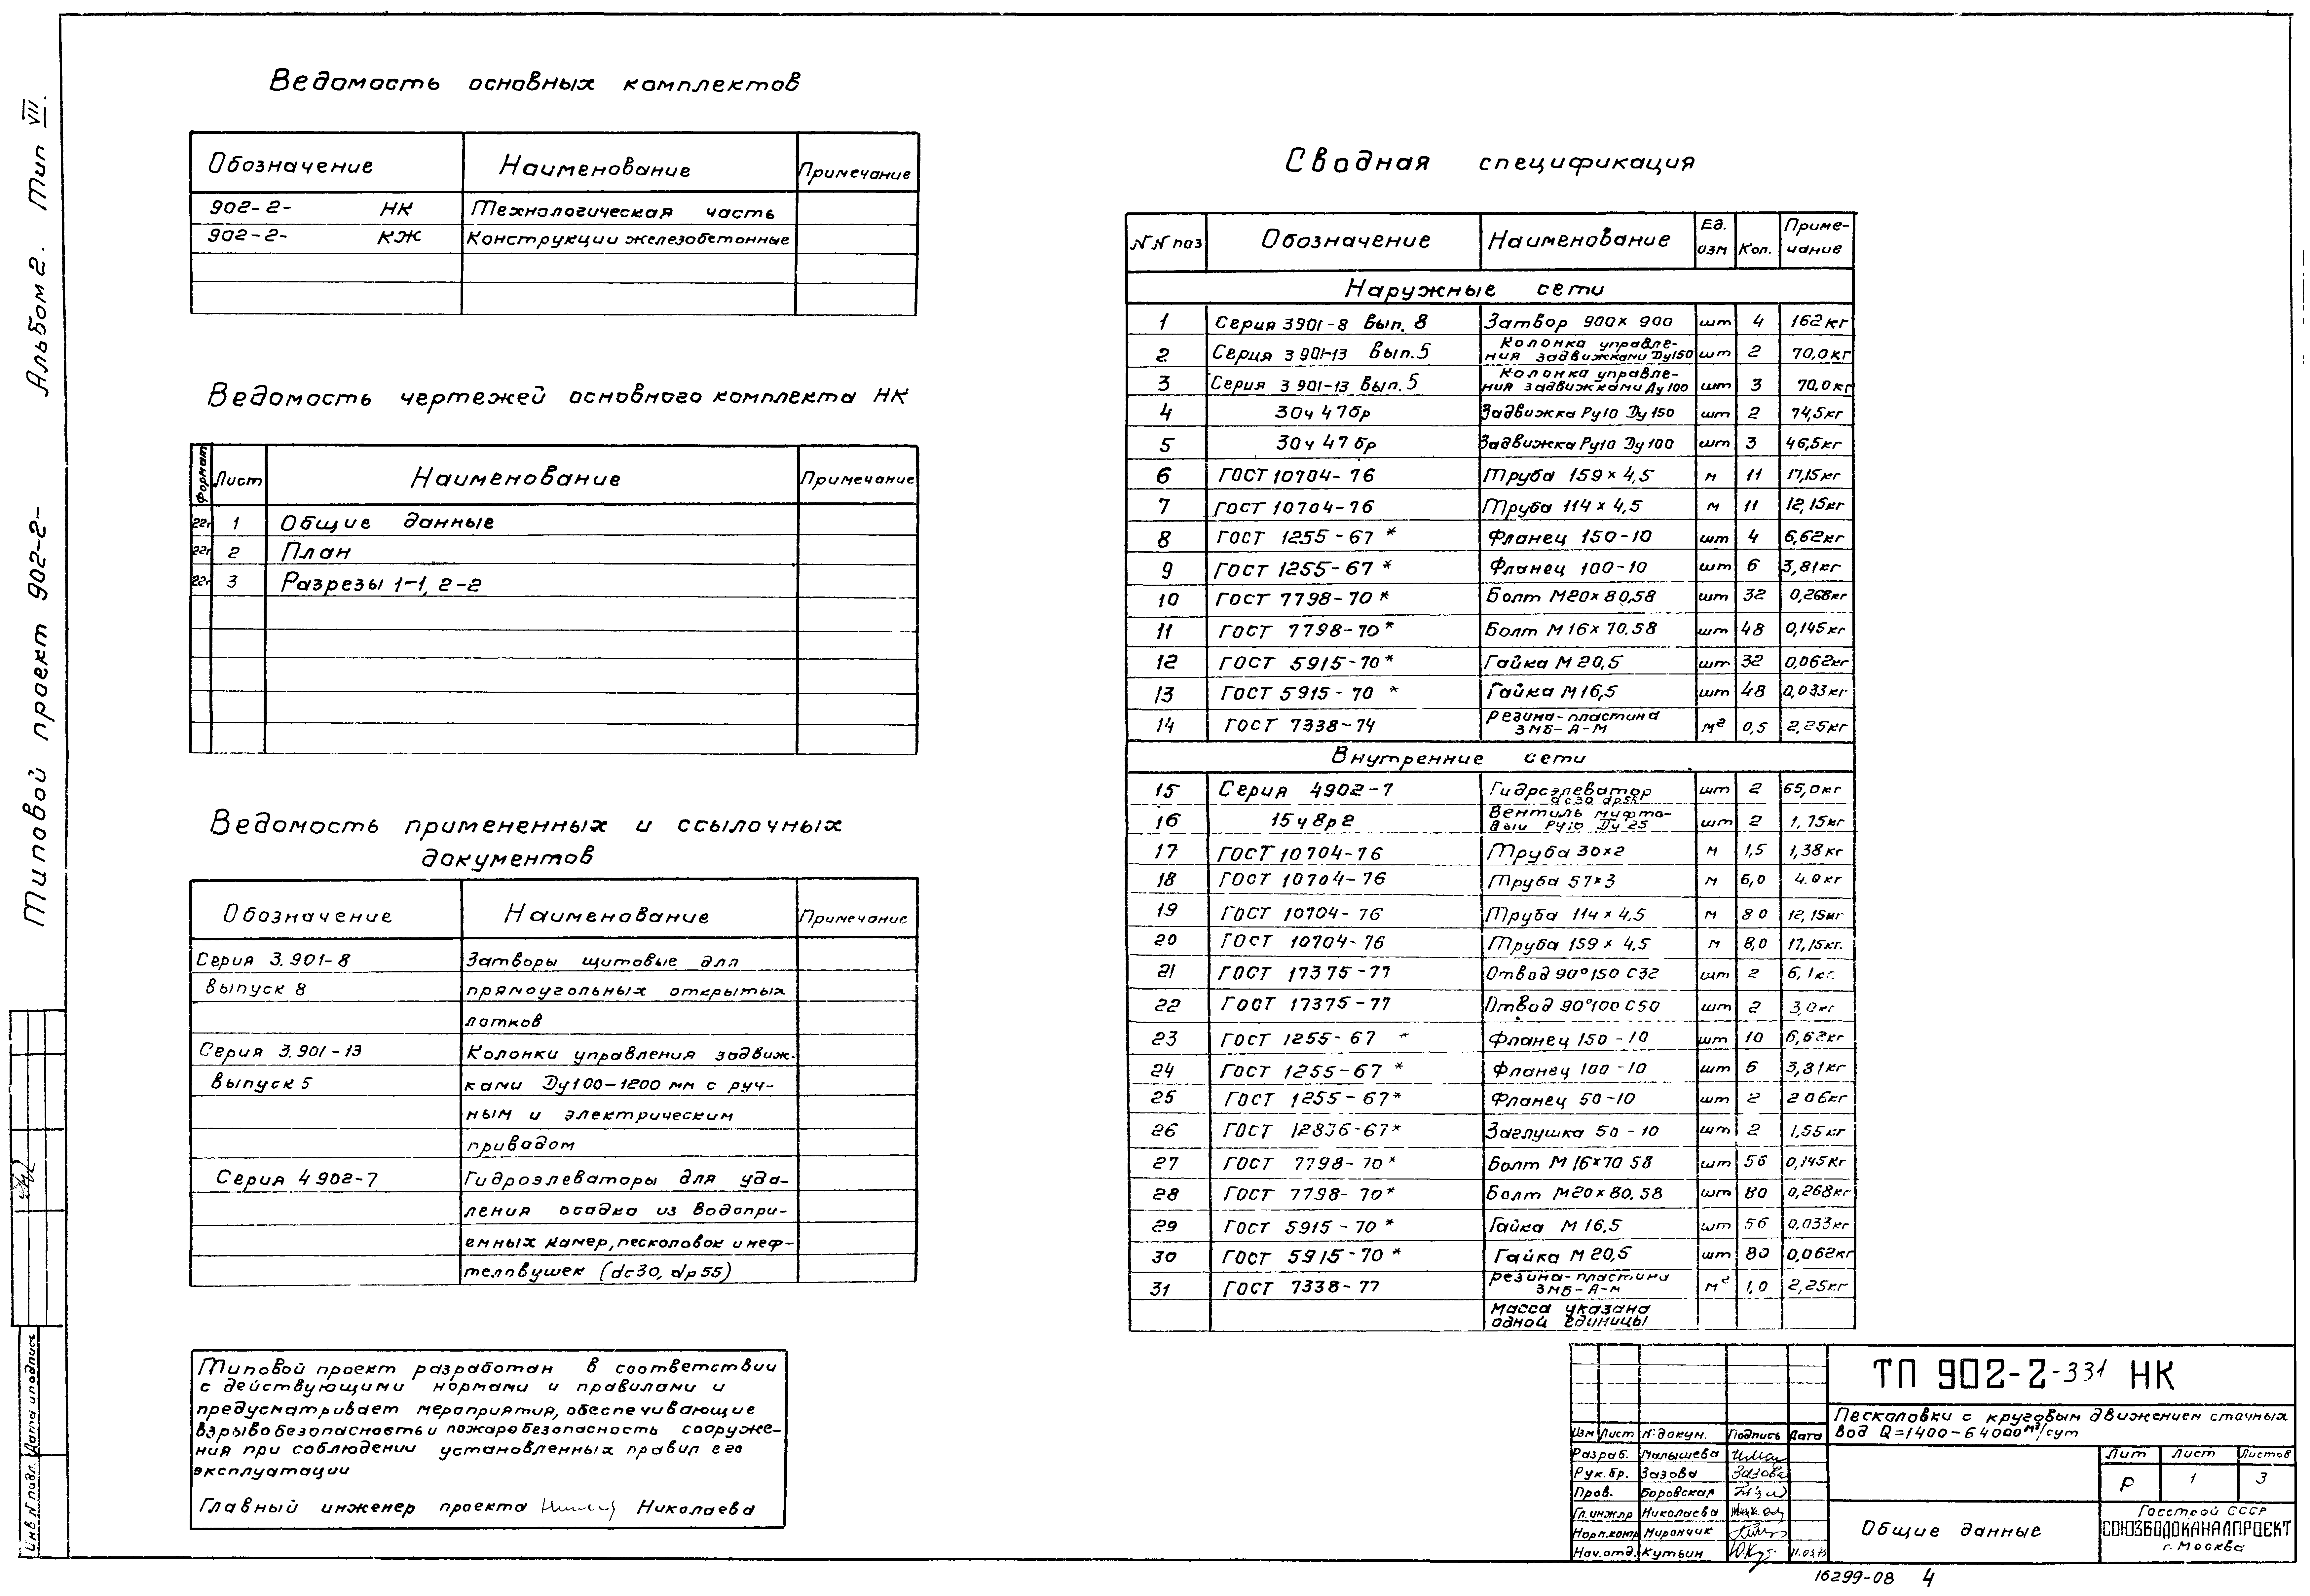 Типовой проект 902-2- Альбом 2. Тип VII.
Ведомость основных комплектов
Обозначение Наименование Примечание
902-2- НК Технологическая часть
902-2- КЖ Конструкции железобетонные
Ведомость чертежей основного комплекта НК
Формат Лист Наименование Примечание
22г 1 Общие данные
22г 2 План
22г 3 Разрезы 1-1, 2-2
Ведомость примененных и ссылочных
документов
Обозначение Наименование Примечание
Серия 3.901-8 Затворы щитовые для
выпуск 8 прямоугольных открытых
лотков
Серия 3.901-13 Колонки управления задвиж-
выпуск 5 ками Ду100-1200 мм с руч-
ным и электрическим
приводом
Серия 4902-7 Гидроэлеваторы для уда-
ления осадка из водопри-
емных камер, песколовок и неф-
теловушек (dc30, dp55)
Типовой проект разработан в соответствии
с действующими нормами и правилами и
предусматривает мероприятия, обеспечивающие
взрывобезопасность и пожаробезопасность сооруже-
ния при соблюдении установленных правил его
эксплуатации
Главный инженер проекта Николаева
Сводная спецификация
NN поз Обозначение Наименование Ед. изм Кол. Приме-чание
Наружные сети
1 Серия 3901-8 Вып. 8 Затвор 900×900 шт 4 162кг
2 Серия 3901-13 Вып.5 Колонка управле-ния задвижками Ду150 шт 2 70,0кг
3 Серия 3901-13 Вып.5 Колонка управле-ния задвижками Ду100 шт 3 70.0кг
4 30ч47бр Задвижка Ру10 Ду150 шт 2 74,5кг
5 30ч47бр Задвижка Ру10 Ду100 шт 3 46,5кг
6 ГОСТ 10704-76 Труба 159×4,5 м 11 17,15кг
7 ГОСТ 10704-76 Труба 114×4,5 м 11 12,15кг
8 ГОСТ 1255-67* Фланец 150-10 шт 4 6,62кг
9 ГОСТ 1255-67* Фланец 100-10 шт 6 3,81кг
10 ГОСТ 7798-70* Болт М20×80,58 шт 32 0,268кг
11 ГОСТ 7798-70* Болт М16×70.58 шт 48 0,145кг
12 ГОСТ 5915-70* Гайка М20,5 шт 32 0,062кг
13 ГОСТ 5915-70* Гайка М16,5 шт 48 0,033кг
14 ГОСТ 7338-74 Резина-пластина 3МБ-А-М м² 0,5 2,25кг
Внутренние сети
15 Серия 4902-7 Гидроэлеватор dc30 dp55 шт 2 65,0кг
16 15ч8р2 Вентиль муфто-вый Ру10 Ду25 шт 2 1,75кг
17 ГОСТ 10704-76 Труба 30×2 м 1,5 1,38кг
18 ГОСТ 10704-76 Труба 57×3 м 6,0 4.0кг
19 ГОСТ 10704-76 Труба 114×4,5 м 80 12,15кг
20 ГОСТ 10704-76 Труба 159×4,5 м 8,0 17,15кг.
21 ГОСТ 17375-77 Отвод 90°150 С32 шт 2 6,1кг.
22 ГОСТ 17375-77 Отвод 90°100 С50 шт 2 3,0кг
23 ГОСТ 1255-67* Фланец 150-10 шт 10 6,62кг
24 ГОСТ 1255-67* Фланец 100-10 шт 6 3,81кг
25 ГОСТ 1255-67* Фланец 50-10 шт 2 2 06кг
26 ГОСТ 12836-67* Заглушка 50-10 шт 2 1,55кг
27 ГОСТ 7798-70* Болт М16×70 58 шт 56 0,145кг
28 ГОСТ 7798-70* Болт М20×80.58 шт 80 0,268кг
29 ГОСТ 5915-70* Гайка М16.5 шт 56 0,033кг
30 ГОСТ 5915-70* Гайка М20,5 шт 80 0,062кг
31 ГОСТ 7338-77 Резина-пластина 3МБ-А-М м² 1,0 2,25кг
Масса указана
одной единицы
ТП 902-2-331 НК
Песколовки с круговым движением сточных
вод Q=1400-64000м³/сут
Изм Лист N: докум. Подпись Дата
Разраб. Малышева
Рук.бр. Зазова Зазова
Пров. Боровская
Гл.инж.пр Николаева
Норм.контр Мирончик
Нач.отд. Кутьин
Лит Лист Листов
Р 1 3
Общие данные
Госстрой СССР
СОЮЗВОДОКАНАЛПРОЕКТ
г. Москва
16299-08 4
Инв N подл. Дата и подпись